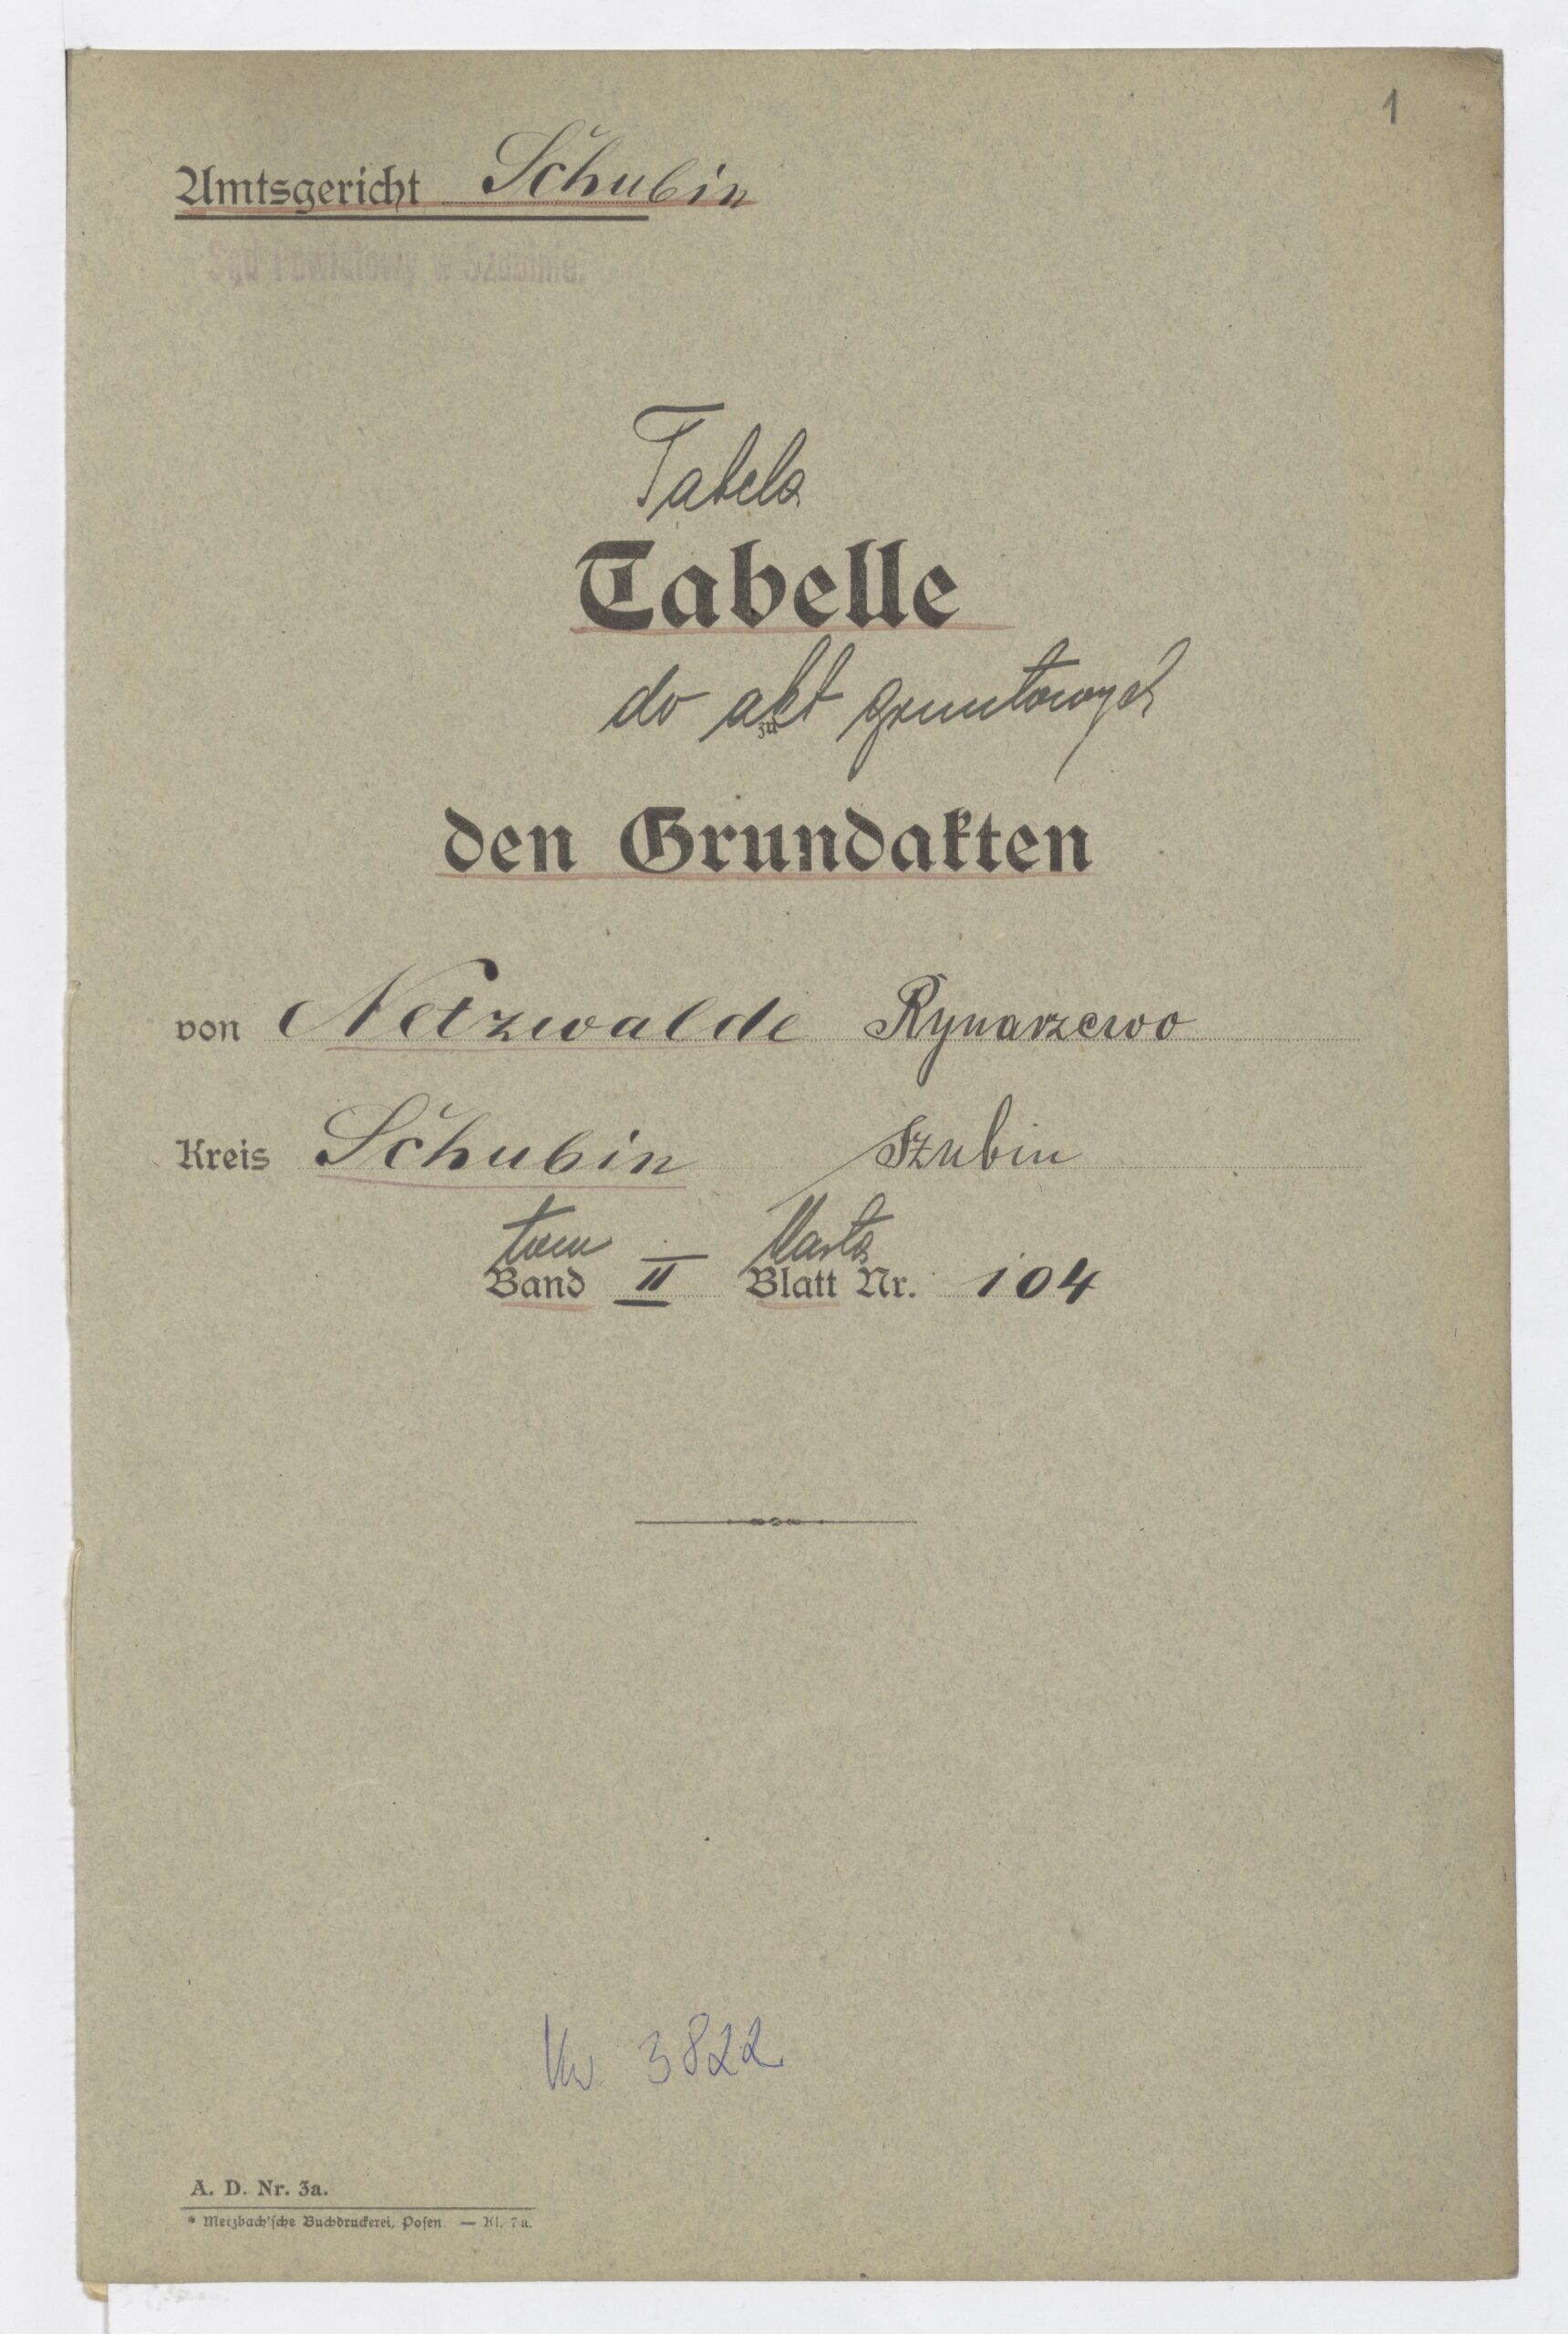 1
Amtsgericht Schubin
Sąd Powiatowy w Szubinie.
Tabela
Tabelle
do akt gruntowych
zu
den Grundakten
von Netzwalde Rynarzewo
Kreis Schubin Szubin
tom karta
Band II Blatt Nr. 104
Kw. 3822
A. D. Nr. 3a.
* Merzbach'sche Buchdruckerei, Posen. — Kl. 7a.